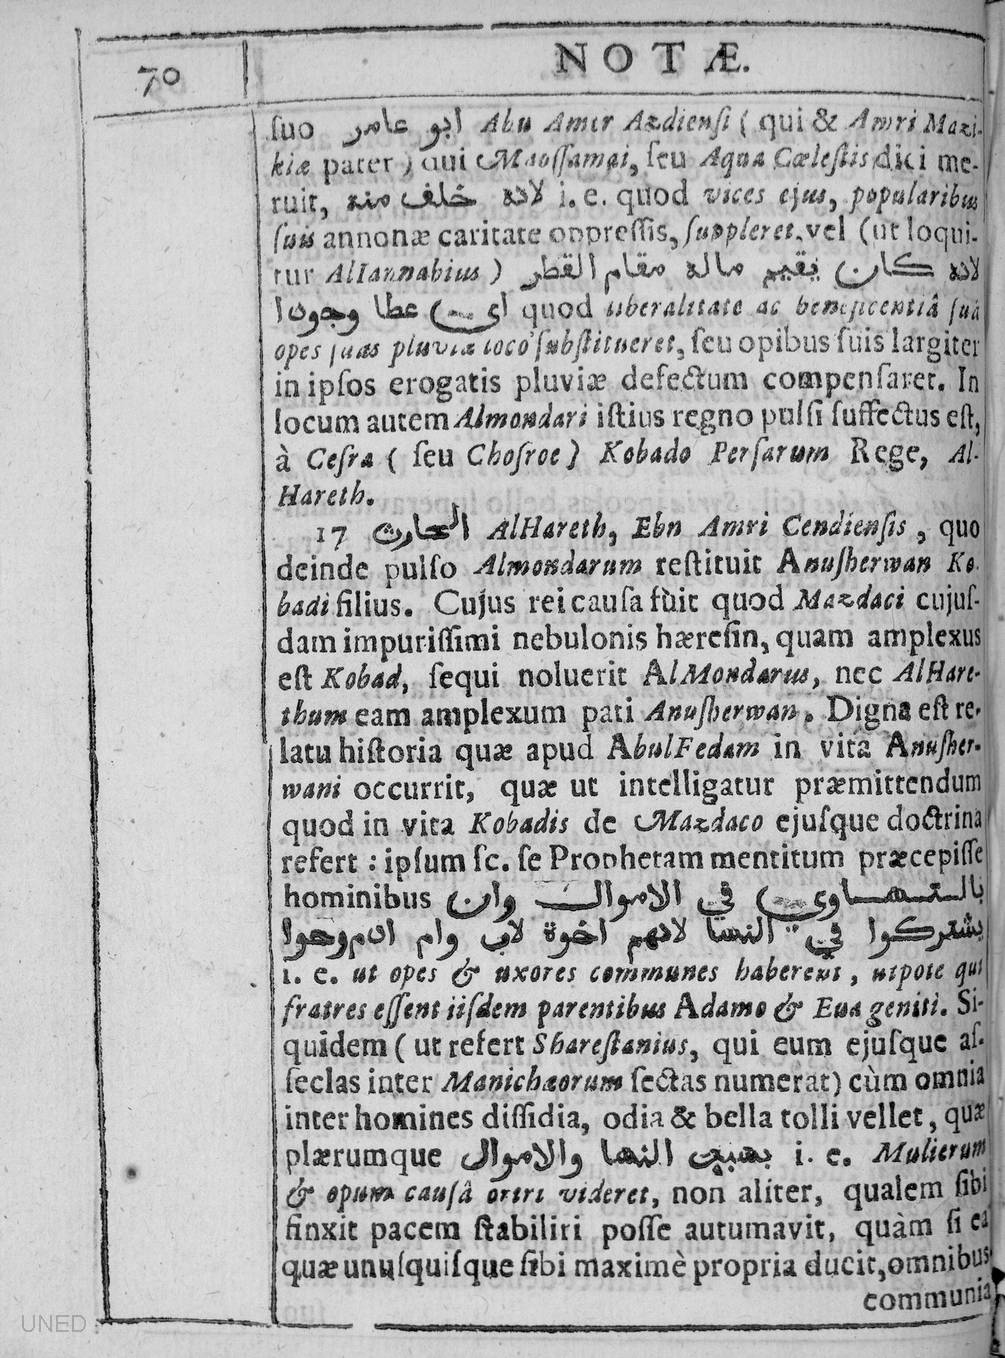 70
NOTÆ.
ſuo ابو عامر Abu Amer Azdienſi ( qui & Amri Mazi-
kiæ pater ) qui Maoſſamai, ſeu Aqua Cœleſtis dici me-
ruit, لانه خلف منه i. e. quod vices ejus, popularibus
ſuis annonæ caritate oppreſſis, ſuppleret, vel (ut loqui-
tur AlJannabius ) لانه كان يقيم ماله مقام القطر
اي عطا وجودا quod liberalitate ac beneficentiâ ſuâ
opes ſuas pluviæ loco ſubſtitueret, ſeu opibus ſuis largiter
in ipſos erogatis pluviæ defectum compenſaret. In
locum autem Almondari iſtius regno pulſi ſuffectus eſt,
à Ceſra ( ſeu Choſroe ) Kobado Perſarum Rege, Al-
Hareth.
17 الحارث AlHareth, Ebn Amri Cendienſis , quo
deinde pulſo Almondarum reſtituit Anuſherwan Ko-
badi filius. Cujus rei cauſa fuit quod Mazdaci cujuſ-
dam impuriſſimi nebulonis hæreſin, quam amplexus
eſt Kobad, ſequi noluerit AlMondarus, nec AlHare-
thum eam amplexum pati Anuſherwan. Digna eſt re-
latu hiſtoria quæ apud AbulFedam in vita Anuſher-
wani occurrit, quæ ut intelligatur præmittendum
quod in vita Kobadis de Mazdaco ejuſque doctrina
refert : ipſum ſc. ſe Prophetam mentitum præcepiſſe
hominibus بالتساوي في الاموال وان
يشتركوا في النسا لانهم اخوة لاب وام ادم وحوا
i. e. ut opes & uxores communes haberent , utpote qui
fratres eſſent iiſdem parentibus Adamo & Eva geniti. Si-
quidem ( ut refert Shareſtanius, qui eum ejuſque aſ-
ſeclas inter Manichæorum ſectas numerat) cùm omnia
inter homines diſſidia, odia & bella tolli vellet, quæ
plærumque بسبب النسا والاموال i. e. Mulierum
& opum cauſâ oriri videret, non aliter, qualem ſibi
finxit pacem ſtabiliri poſſe autumavit, quàm ſi ea
quæ unuſquiſque ſibi maximè propria ducit, omnibus
communia
UNED